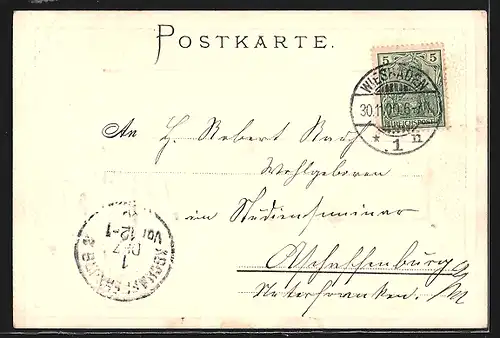 POSTKARTE.
5 5
REICHSPOST
WIESBADEN
30.11.00. 6-7N.
* 1 n
An H. Robert
Wohlgeboren
im Studienseminar
Aschaffenburg a/M
Unterfranken.
ASCHAFFENBURG
1 DEZ
Vor 12-1